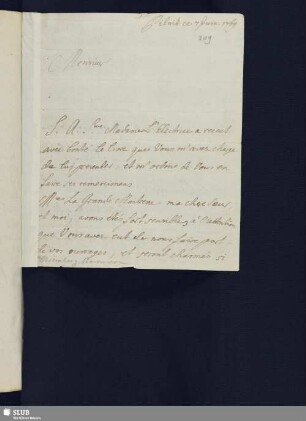 ce 7 1769
209
Monsieur
S. A. Madame l'Electrice a recut
avec bonté le livre que Vous m'avez chargé
de lui presenter, et m'ordonne de Vous en
faire ses remercimens
Me. La Grande Maitresse, ma chere Sœur
et moi, avons été fort sensibles à l'attention
que Vous avez eu de nous faire part
de vos ouvrages, et seront charmées si
SLUB